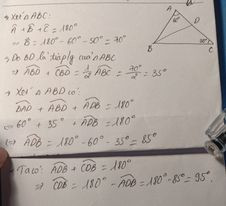 + Xét △ ABC:
A
Â + B̂ + Ĉ = 180°
60°
D
⇒ B̂ = 180° - 60° - 50° = 70°
B
50°
C
+ Do BD là tia p/g của △ABC
⇒ ABD = CBD = 1/2 ABC = 70°/2 = 35°
+ Xét △ ABD có:
BAD + ABD + ADB = 180°
⇔ 60° + 35° + ADB = 180°
⇔ ADB = 180° - 60° - 35° = 85°
+ Ta có: ADB + CDB = 180°
⇒ CDB = 180° - ADB = 180° - 85° = 95°.